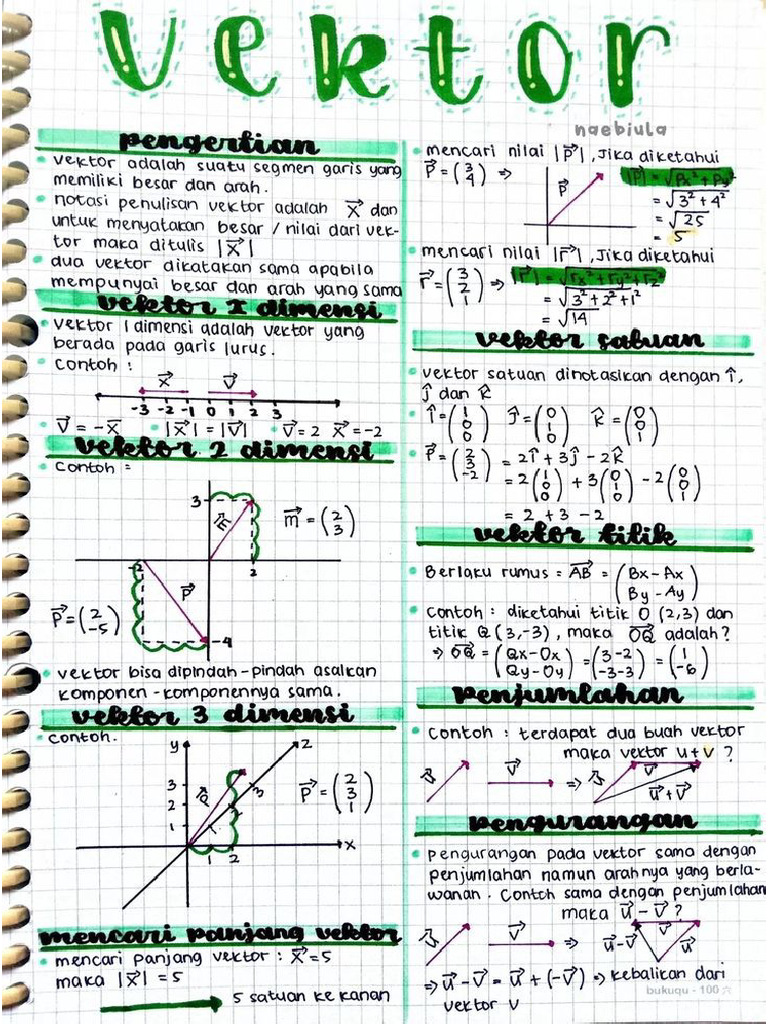 vektor
naebiula
pengertian
• vektor adalah suatu segmen garis yang
memiliki besar dan arah.
• notasi penulisan vektor adalah x⃗ dan
untuk menyatakan besar / nilai dari vek-
tor maka ditulis |x⃗|
• dua vektor dikatakan sama apabila
mempunyai besar dan arah yang sama
vektor 1 dimensi
• vektor 1 dimensi adalah vektor yang
berada pada garis lurus.
• contoh :
x⃗ v⃗
-3 -2 -1 0 1 2 3
• v⃗ = -x⃗ • |x⃗| = |v⃗| • v⃗ = 2 x⃗ = -2
vektor 2 dimensi
• contoh =
3 m⃗ m⃗ = (2 3)
-2 2
p⃗ = (2 -5) p⃗
-4
• vektor bisa dipindah-pindah asalkan
komponen-komponennya sama.
vektor 3 dimensi
• contoh.
y z
3
2
1
p⃗ 1 2 3 p⃗ = (2 3 1)
1 2 x
mencari panjang vektor
• mencari panjang vektor : x⃗ = 5
maka |x⃗| = 5
5 satuan ke kanan
• mencari nilai |p⃗|, jika diketahui
p⃗ = (3 4) ⇒ p⃗ |p⃗| = √px² + py²
= √3² + 4²
= √25
= 5
• mencari nilai |r⃗|, jika diketahui
r⃗ = (3 2 1) ⇒ |r⃗| = √rx² + ry² + rz²
= √3² + 2² + 1²
= √14
vektor satuan
• vektor satuan dinotasikan dengan î,
ĵ dan k̂
• î = (1 0 0) ĵ = (0 1 0) k̂ = (0 0 1)
• p⃗ = (2 3 -2) = 2î + 3ĵ - 2k̂
= 2(1 0 0) + 3(0 1 0) - 2(0 0 1)
= 2 + 3 - 2
vektor titik
• Berlaku rumus = AB⃗ = (Bx - Ax By - Ay)
• contoh : diketahui titik O (2,3) dan
titik Q (3,-3), maka OQ⃗ adalah?
⇒ OQ⃗ = (Qx - Ox Qy - Oy) = (3-2 -3-3) = (1 -6)
penjumlahan
• contoh : terdapat dua buah vektor
maka vektor u + v ?
u⃗ v⃗ ⇒ u⃗ v⃗ u⃗ + v⃗
pengurangan
• pengurangan pada vektor sama dengan
penjumlahan namun arahnya yang berla-
wanan. Contoh sama dengan penjumlahan
maka u⃗ - v⃗ ?
u⃗ v⃗ ⇒ u⃗ - v⃗ v⃗ u⃗
⇒ u⃗ - v⃗ = u⃗ + (-v⃗) ⇒ kebalikan dari
vektor v
bukuqu - 100